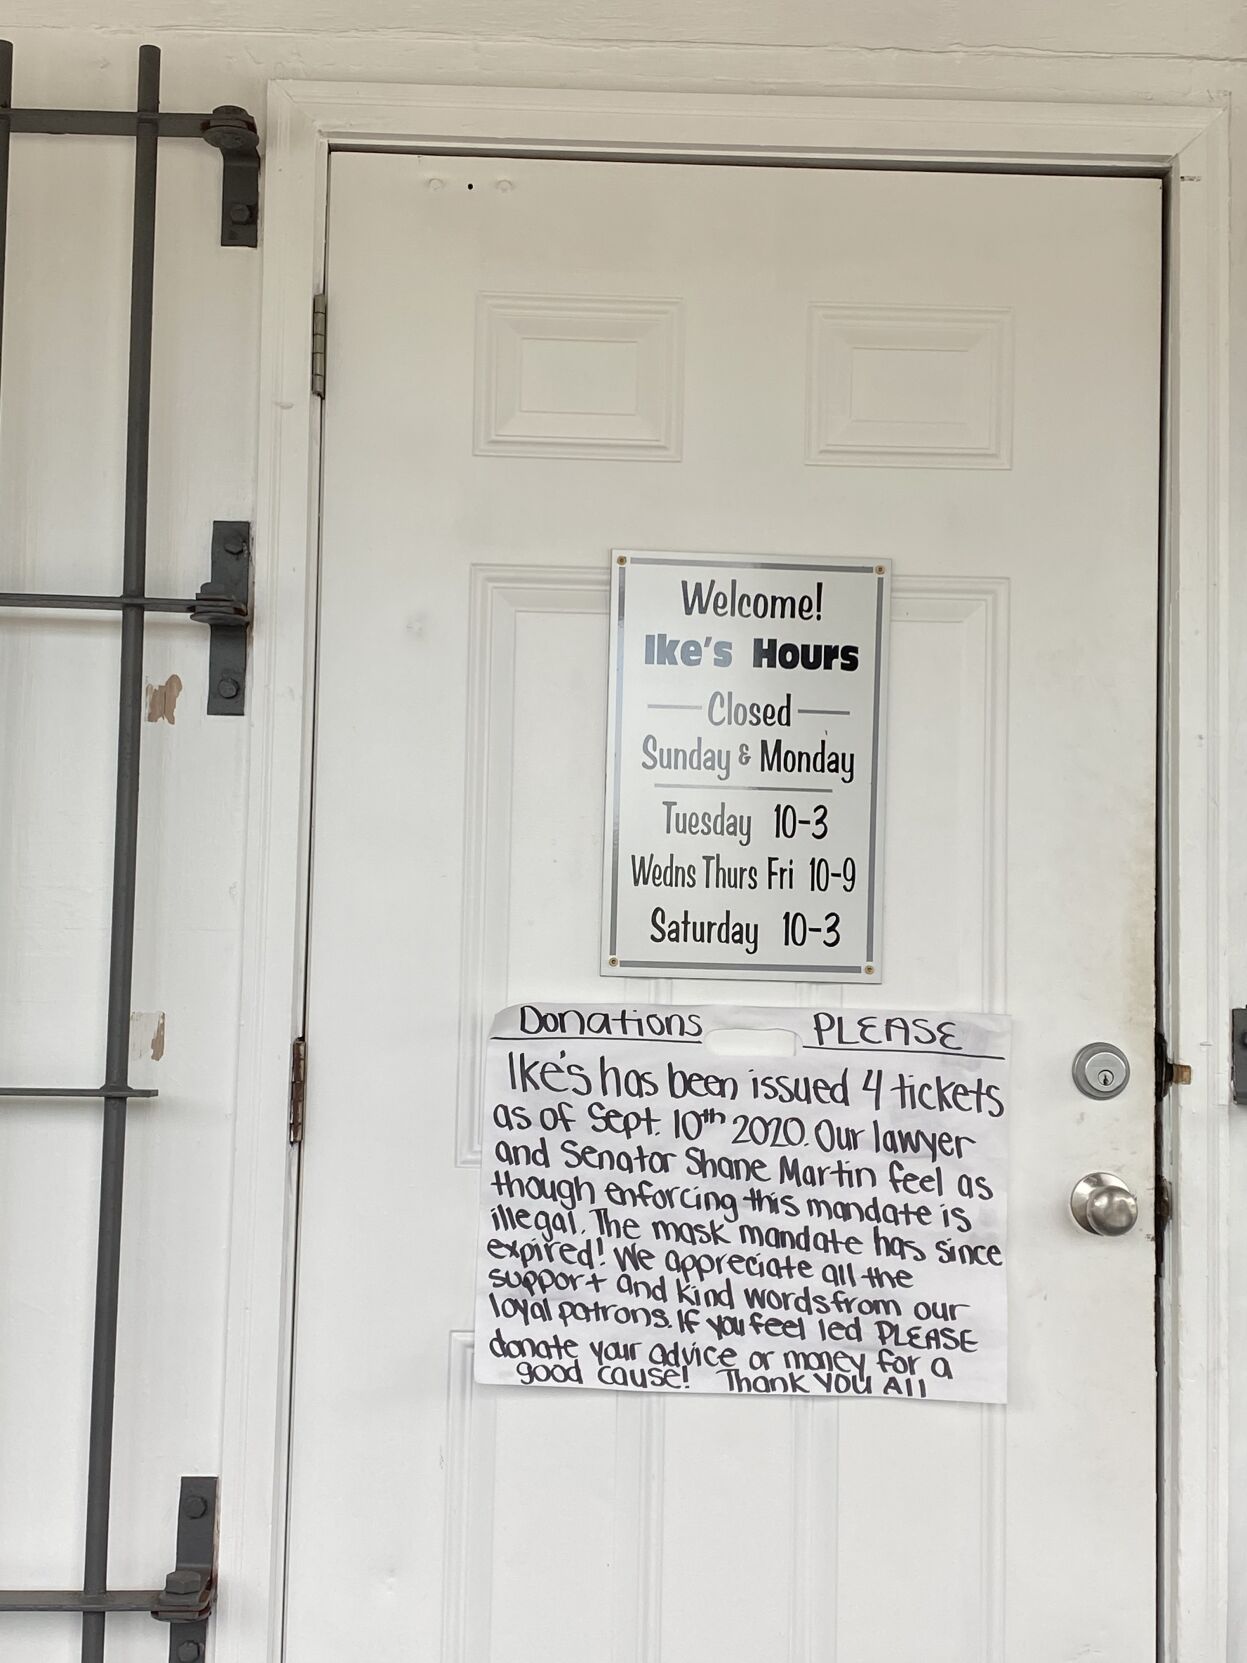 Welcome!
Ike's Hours
Closed
Sunday & Monday
Tuesday 10-3
Wedns Thurs Fri 10-9
Saturday 10-3
Donations PLEASE
Ike's has been issued 4 tickets
as of Sept. 10th 2020. Our lawyer
and Senator Shane Martin feel as
though enforcing this mandate is
illegal. The mask mandate has since
expired! We appreciate all the
support and kind words from our
loyal patrons. If you feel led PLEASE
donate your advice or money for a
good cause! Thank You All